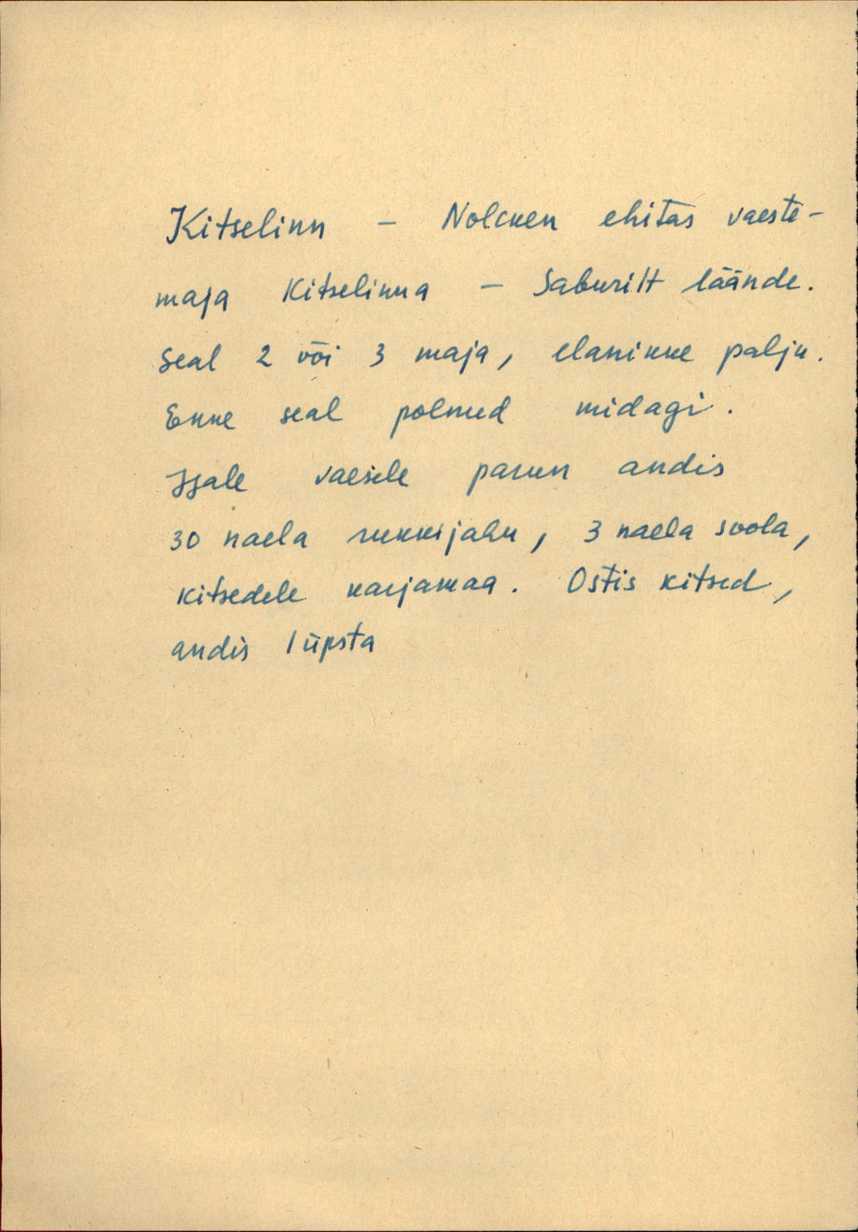 Kitselinn – Nolcken ehitas vaeste-
maja Kitselinna – Saburilt läände.
Seal 2 või 3 maja, elanikke palju.
Enne seal polnud midagi.
Igale vaesele parun andis
30 naela rukkijahu, 3 naela soola,
kitsedele karjamaa. Ostis kitsed,
andis lüpsta